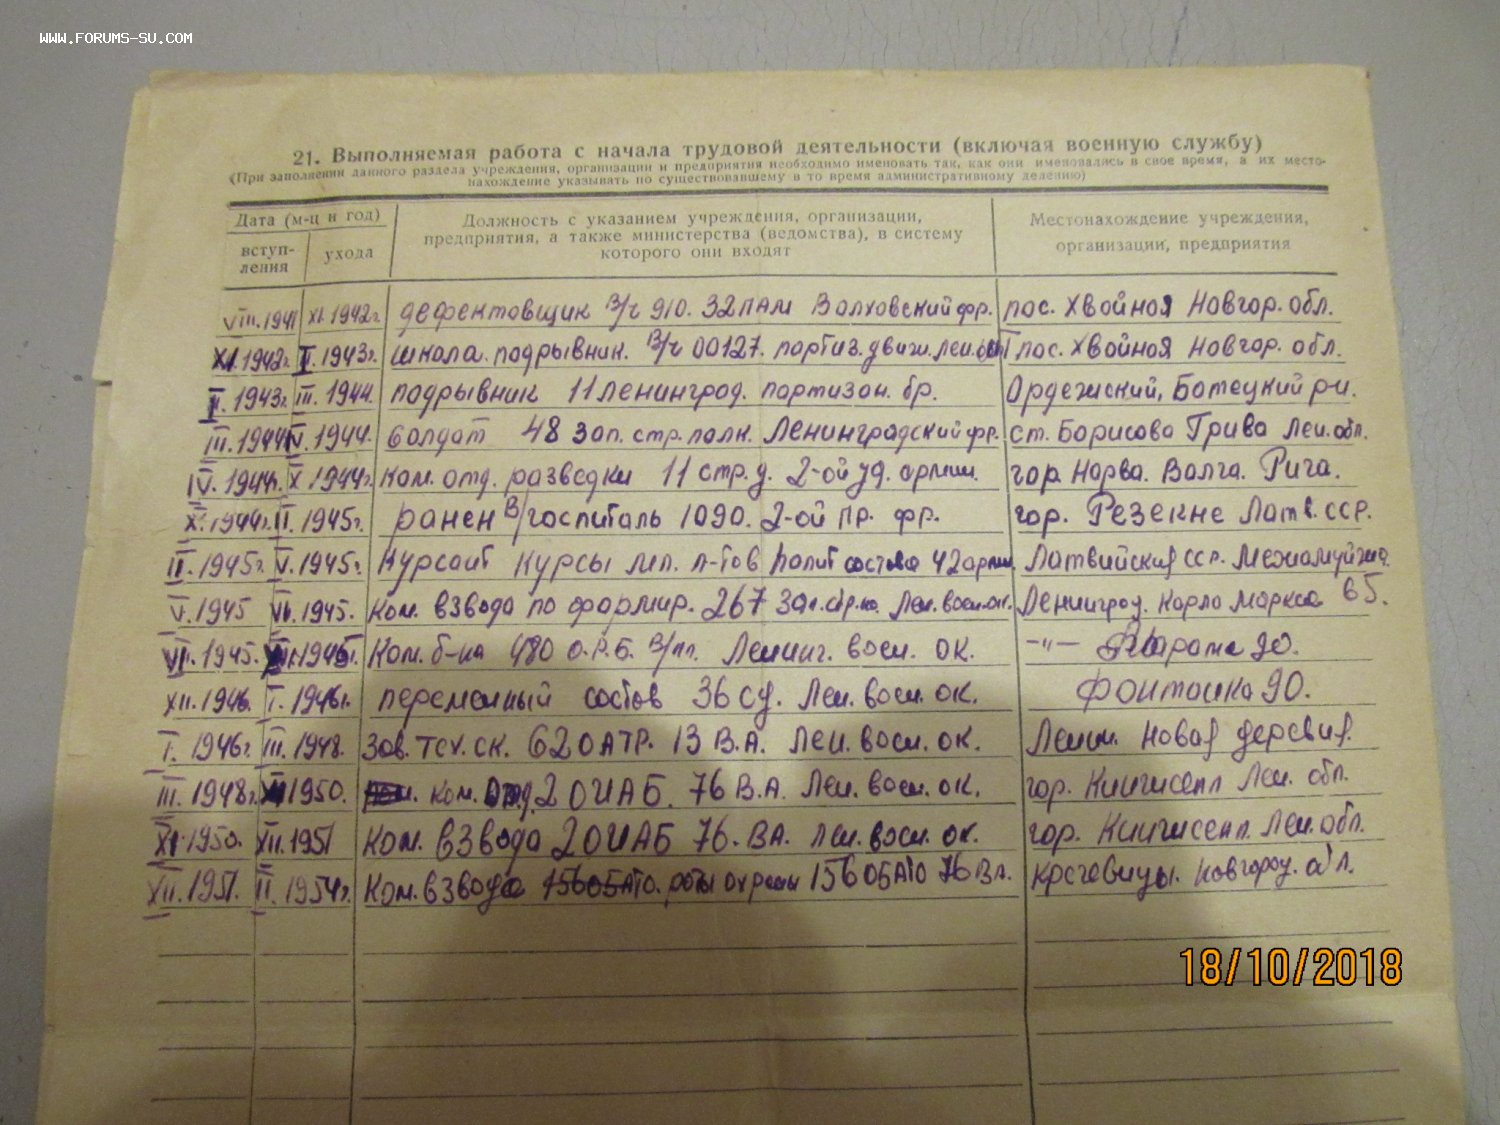 WWW.FORUMS-SU.COM
21. Выполняемая работа с начала трудовой деятельности (включая военную службу)
(При заполнении данного раздела учреждения, организации и предприятия необходимо именовать так, как они именовались в свое время, а их место-
нахождение указывать по существовавшему в то время административному делению)
Дата (м-ц и год)
вступ-
ления
ухода
Должность с указанием учреждения, организации,
предприятия, а также министерства (ведомства), в систему
которого они входят
Местонахождение учреждения,
организации, предприятия
VIII.1941 XI.1942г. дефектовщик В/ч 910. 32 ПАМ Волховский фр. пос. Хвойная Новгор. обл.
XI.1942г. I.1943г. школа подрывник. В/ч 00127. партиз. движ. Лен. пос. Хвойная Новгор. обл.
II.1943г. III.1944. подрывник 11 Ленинград. партизан. бр. Ордежский, Батецкий р-н.
III.1944 IV.1944. солдат 48 зап. стр. полк. Ленинградский фр. ст. Борисова Грива Лен. обл.
IV.1944г. X 1944г. ком. отд. разведки 11 стр. д. 2-ой уд. армии. гор. Нарва. Валга. Рига.
X.1944г. II.1945г. ранен В/госпиталь 1090. 2-ой Пр. фр. гор. Резекне Латв. ССР.
II.1945г. V.1945г. Курсант Курсы мл. л-тов полит состава 42 армии. Латвийская ССР.
V.1945 VI.1945. Ком. взвода по формир. 267 Зап. стр. п. Лен. воен. ок. Ленинград. Карла Маркса 65.
VI.1945. Ком. б-на 480 О.Р.Б. В/пл. Ленинг. воен. ок. -"- 90.
XII.1946. I.1946г. переменный состав 36 СУ. Лен. воен. ок. Фонтанка 90.
I.1946г. III.1948. Зав. тех. ск. 62 ОАТР. 13 В.А. Лен. воен. ок. Ленин. Новая деревня.
III.1948г. 1950. ком. отд. 2 ОИАБ. 76 В.А. Лен. воен. ок. гор. Кингисепп Лен. обл.
XI.1950. XII.1951 Ком. взвода 2 ОИАБ 76. ВА. Лен. воен. ок. гор. Кингисепп. Лен. обл.
XII.1951. II.1954г. Ком. взвода роты охраны 156 ОБАТО 76 ВА. Кресевицы. Новгород. обл.
18/10/2018